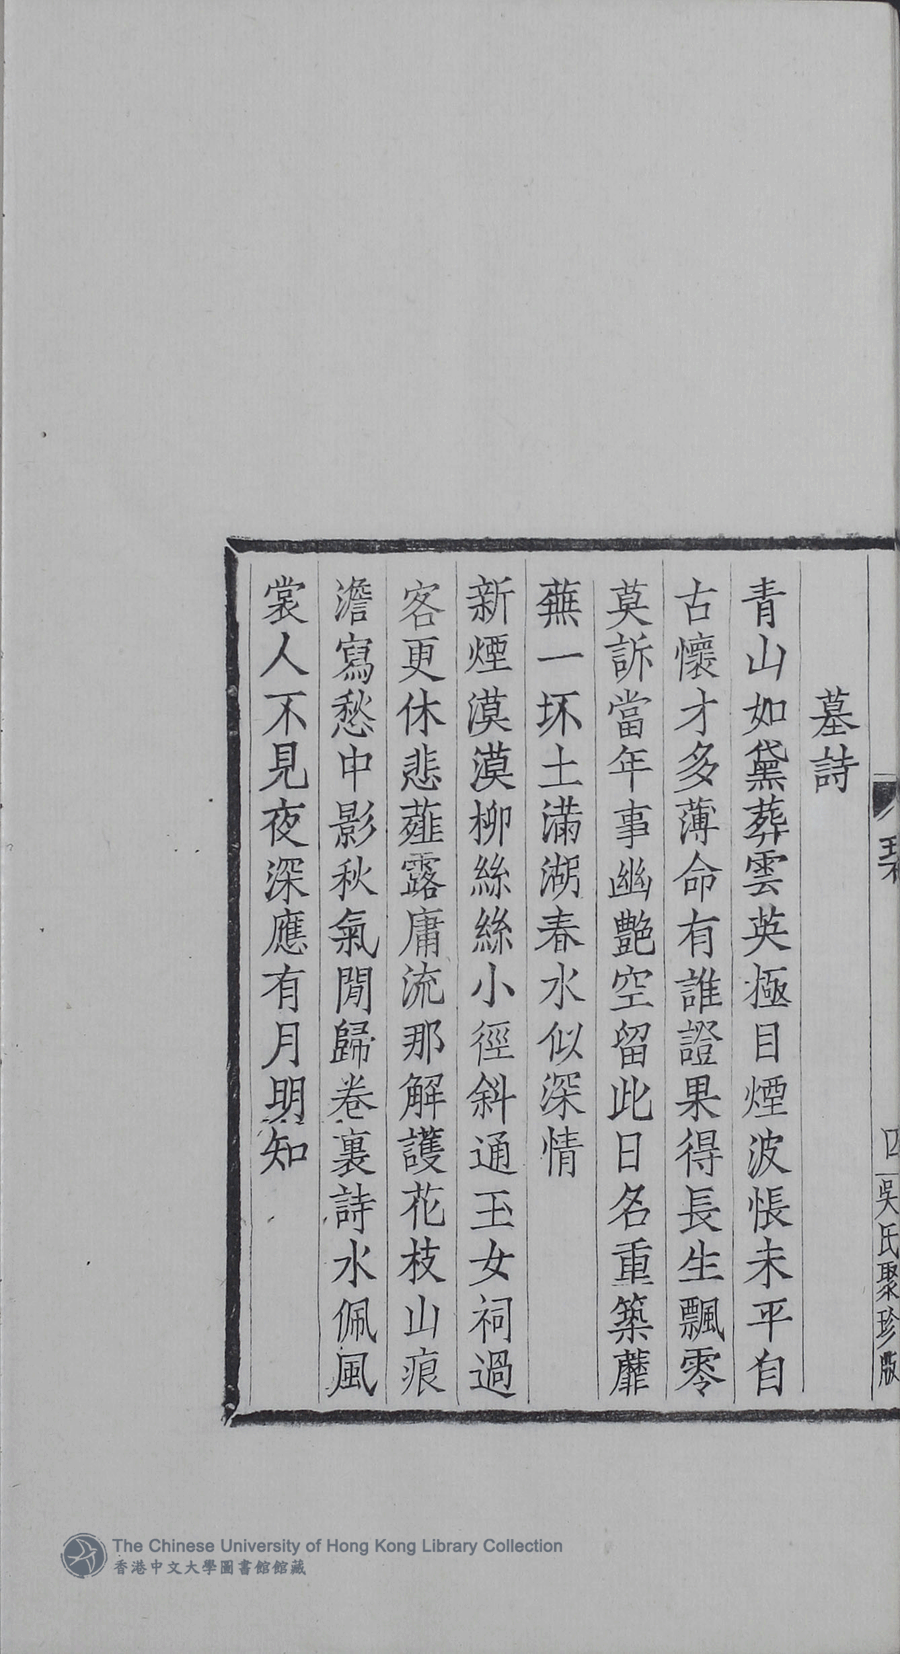 墓詩
青山如黛葬雲英極目煙波悵未平自
古懷才多薄命有誰證果得長生飄零
莫訴當年事幽艷空留此日名重築蘼
蕪一坏土滿湖春水似深情
新煙漠漠柳絲絲小徑斜通玉女祠過
客更休悲薤露庸流那解護花枝山痕
澹寫愁中影秋氣閒歸卷裏詩水佩風
裳人不見夜深應有月明知
四
吳氏聚珍版
The Chinese University of Hong Kong Library Collection
香港中文大學圖書館館藏